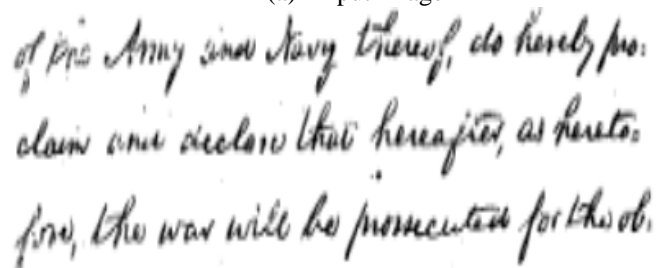 of the Army and Navy thereof, do hereby pro:
claim and declare that hereafter, as hereto:
fore, the war will be prosecuted for the ob.